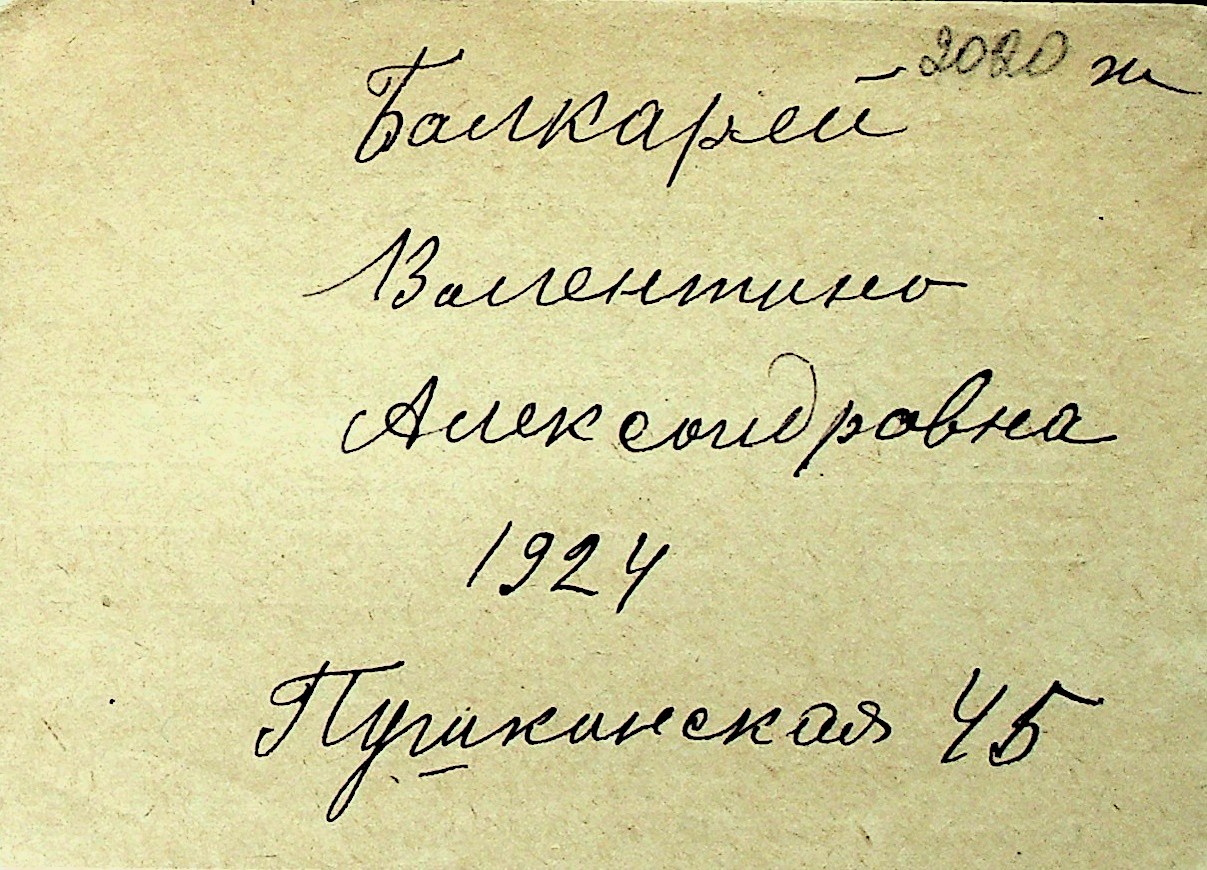 2020 ж
Балкарей
Валентина
Александровна
1924
Пушкинская 45